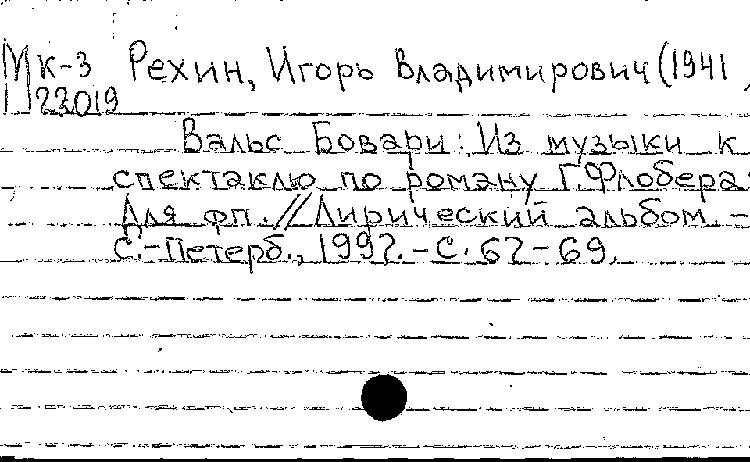 Мк-3 Рехин, Игорь Владимирович (1941,
22019
Вальс Бовари: Из музыки к
спектаклю по роману Г. Флобера:
Для фп. // Лирический альбом. -
С.-Петерб., 1992. - С. 62-69.